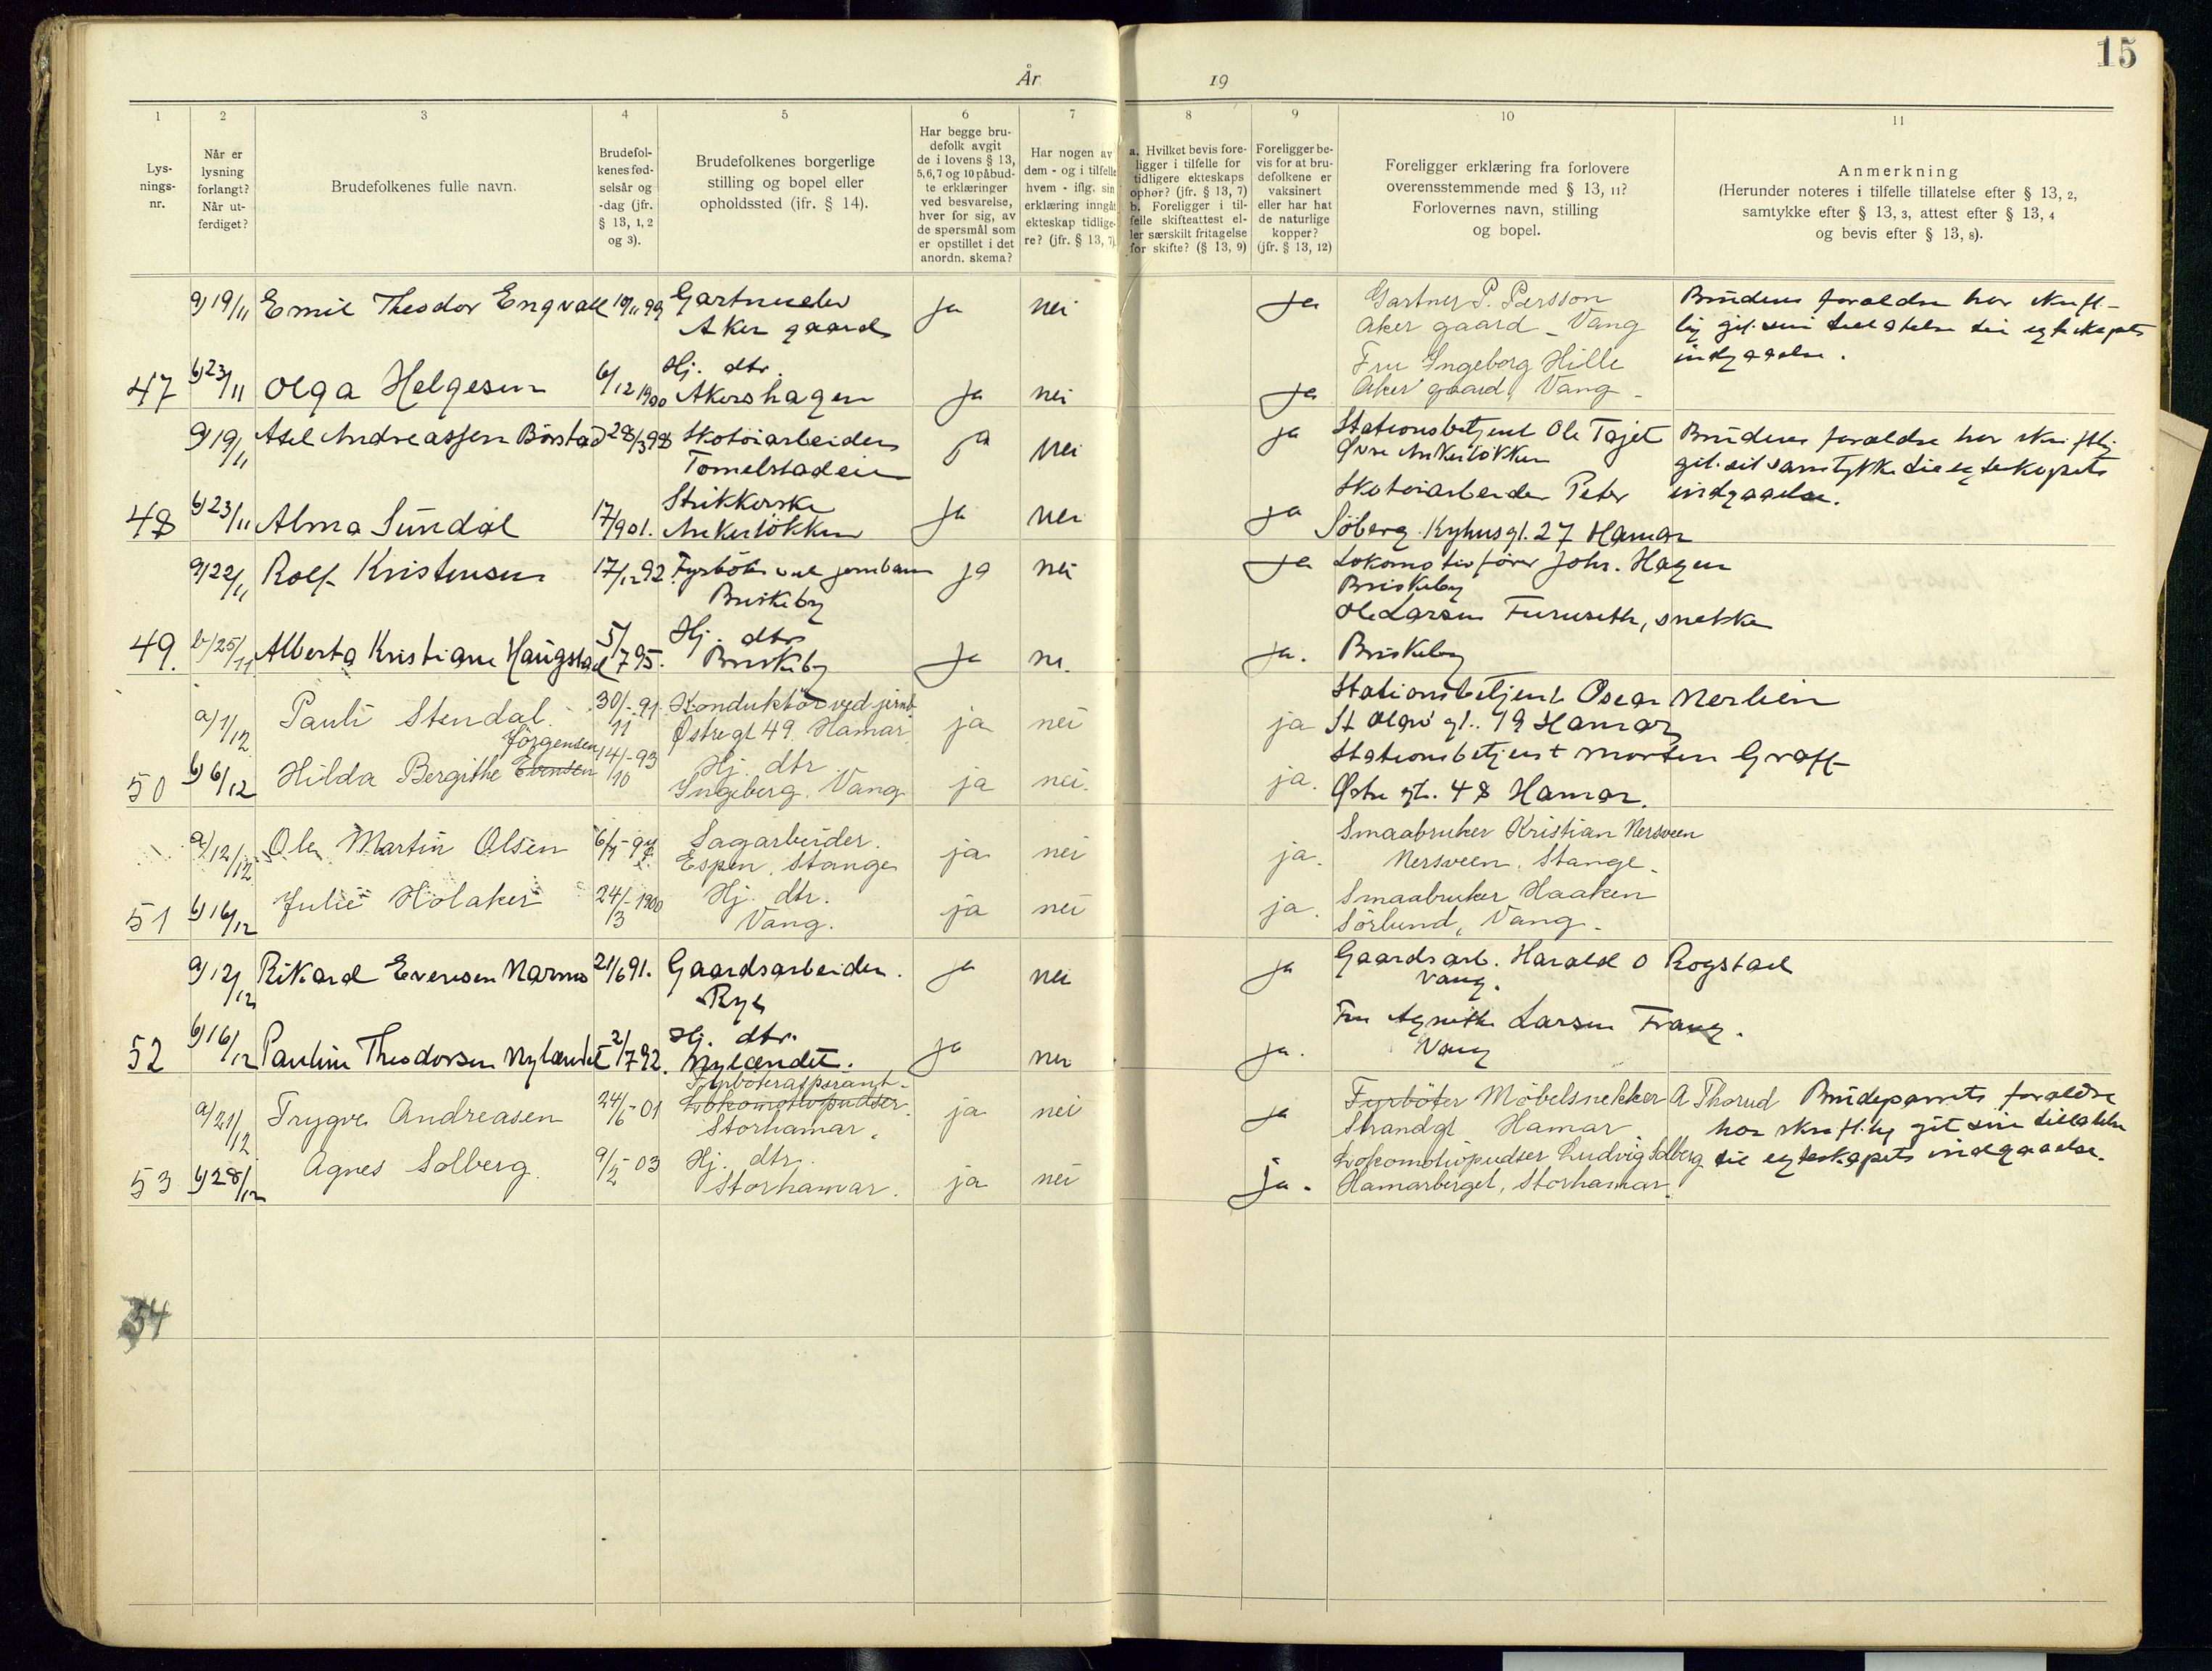 15
År
19
1
2
3
4
5
6
7
8
9
10
11
Lys-
nings-
nr.
Når er
lysning
forlangt?
Når ut-
ferdiget?
Brudefolkenes fulle navn.
Brudefol-
kenes fød-
selsår og
-dag (jfr.
§ 13, 1, 2
og 3).
Brudefolkenes borgerlige
stilling og bopel eller
opholdssted (jfr. § 14).
Har begge bru-
defolk avgit
de i lovens § 13,
5, 6, 7 og 10 påbud-
te erklæringer
ved besvarelse,
hver for sig, av
de spørsmål som
er opstillet i det
anordn. skema?
Har nogen av
dem - og i tilfelle
hvem - iflg. sin
erklæring inngåt
ekteskap tidlige-
re? (jfr. § 13, 7)
a. Hvilket bevis fore-
ligger i tilfelle for
tidligere ekteskaps
ophør? (jfr. § 13, 7)
b. Foreligger i til-
felle skifteattest el-
ler særskilt fritagelse
for skifte? (§ 13, 9)
Foreligger be-
vis for at bru-
defolkene er
vaksinert
eller har hat
de naturlige
kopper?
(jfr. § 13, 12)
Foreligger erklæring fra forlovere
overensstemmende med § 13, 11?
Forlovernes navn, stilling
og bopel.
Anmerkning
(Herunder noteres i tilfelle tillatelse efter § 13, 2,
samtykke efter § 13, 3, attest efter § 13, 4
og bevis efter § 13, 8).
a) 19/11 Emil Theodor Engvall 19/11 99 Gartnerelev ja nei ja Gartner P. Persson Brudens foraldre har skrift-
Aker gaard Aker gaard - Vang lig git sin tillatelse til egteskapets
47 b) 23/11 Olga Helgesen 6/12 1900 Hj. dtr. Fru Ingeborg Hille indgaaelse.
Akershagen ja nei ja Aker gaard, Vang -
a) 19/11 Axel Andreassen Börstad 28/3 98 Skotöiarbeider ja nei ja Stationsbetjent Ole Tajet Brudens foraldre har skriftlig
Tomelstadeie Øvre Ankerlökken git sit samtykke til egteskapets
48 b) 23/11 Alma Sundal 17/9 01. Strikkerske ja nei ja Skotöiarbeider Peter indgaaelse.
Ankerlökken Söberg Kyhusgt. 27 Hamar
a) 22/11 Rolf Kristensen 17/12 92 Fyrböter ved jernbane ja nei ja Lokomotivförer Johs. Hagen
Briskeby Briskeby
49. b) 25/11 Alberta Kristiane Haugstad 5/7 95. Hj. dtr. Ole Larsen Furuseth, snekker
Briskeby ja nei ja. Briskeby
a) 1/12 Pauli Stendal. 30/11-91 Konduktör ved jernb. ja nei ja Stationsbetjent Oscar Merlien
Østregt 49. Hamar St Olavs gt. 79 Hamar
Jörgensen
50 b) 6/12 Hilda Bergithe Evensen 14/10-93 Hj. dtr. ja nei. ja. Stationsbetjent Morten Graff
Ingeberg. Vang Østre gt. 48 Hamar.
a) 12/12 Ole Martin Olsen Sagarbeider. ja nei ja. Smaabruker Kristian Nersveen
Espen, Stange Nersveen, Stange.
51 b) 16/12 Julie Holaker 24/3-1900 Hj. dtr. ja nei ja. Smaabruker Haaken
Vang. Sörlund, Vang.
a) 12/12 Rikard Evensen Narmo 21/6 91. Gaardsarbeider. ja nei ja Gaardsarb. Harald O Rogstad
Ryh Vang.
52 b) 16/12 Pauline Theodorsen Nylændet 2/7 92. Hj. dtr. ja nei ja. Fru Agnethe Larsen Frang.
Nylændet. Vang
Fyrböteraspirant-
a) 21/12 Trygve Andreasen 24/6-01 Lokomotivpudser. ja nei ja Fyrböter Möbelsnekker A Thorud Brudeparrets foraldre
Storhamar. Strandgt Hamar har skriftlig git sin tillatelse
53 b) 28/12 Agnes Solberg. 9/5-03 Hj. dtr. ja nei ja. Lokomotivpudser Ludvig Solberg til egteskapets indgaaelse.
Storhamar. Hamarberget, Storhamar.
54